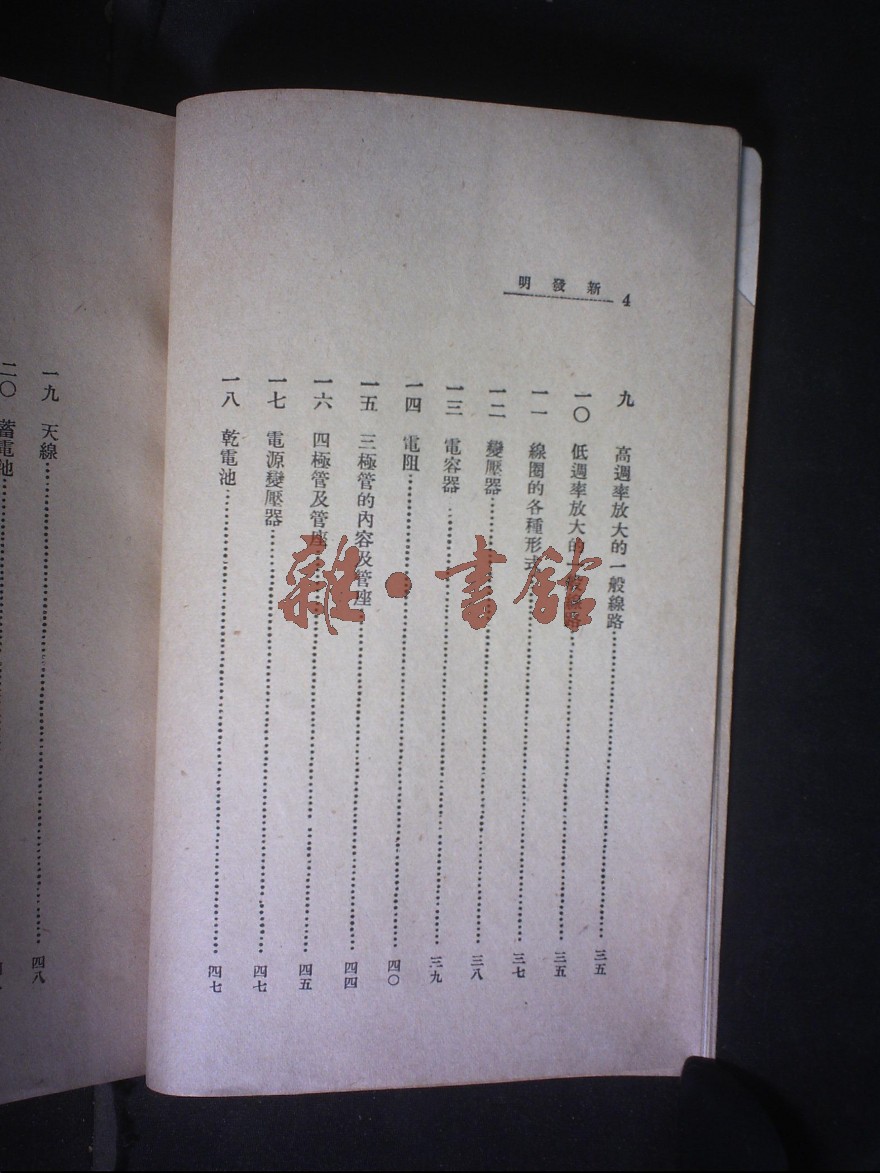 新發明 4
九 高週率放大的一般線路 三五
一〇 低週率放大的一般線路 三五
一一 線圈的各種形式 三七
一二 變壓器 三八
一三 電容器 三九
一四 電阻 四〇
一五 三極管的內容及管座 四四
一六 四極管及管座 四五
一七 電源變壓器 四七
一八 乾電池 四七
一九 天線 四八
二〇 蓄電池
雜·書館